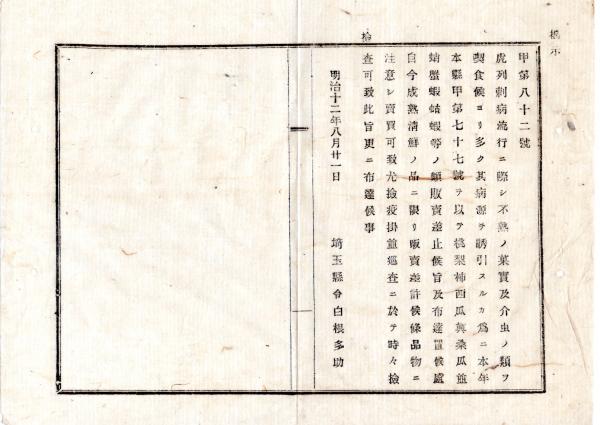 掲示
甲第八十二號
虎列刺病流行ニ際シ不熟ノ菓實及介虫ノ類ヲ
喫食候ヨリ多ク其病源ヲ誘引スルカ爲ニ本年
本縣甲第七十七號ヲ以テ桃梨柿西瓜眞桑瓜並
蛸蟹蝦蛄蝦等ノ類販賣差止候旨及布達置候處
自今成熟清鮮ノ品ニ限リ販賣差許候條品物ニ
注意シ賣買可致尤撿疫掛並巡査ニ於テ時々撿
査可致此旨更ニ布達候事
明治十二年八月廿一日
埼玉縣令白根多助